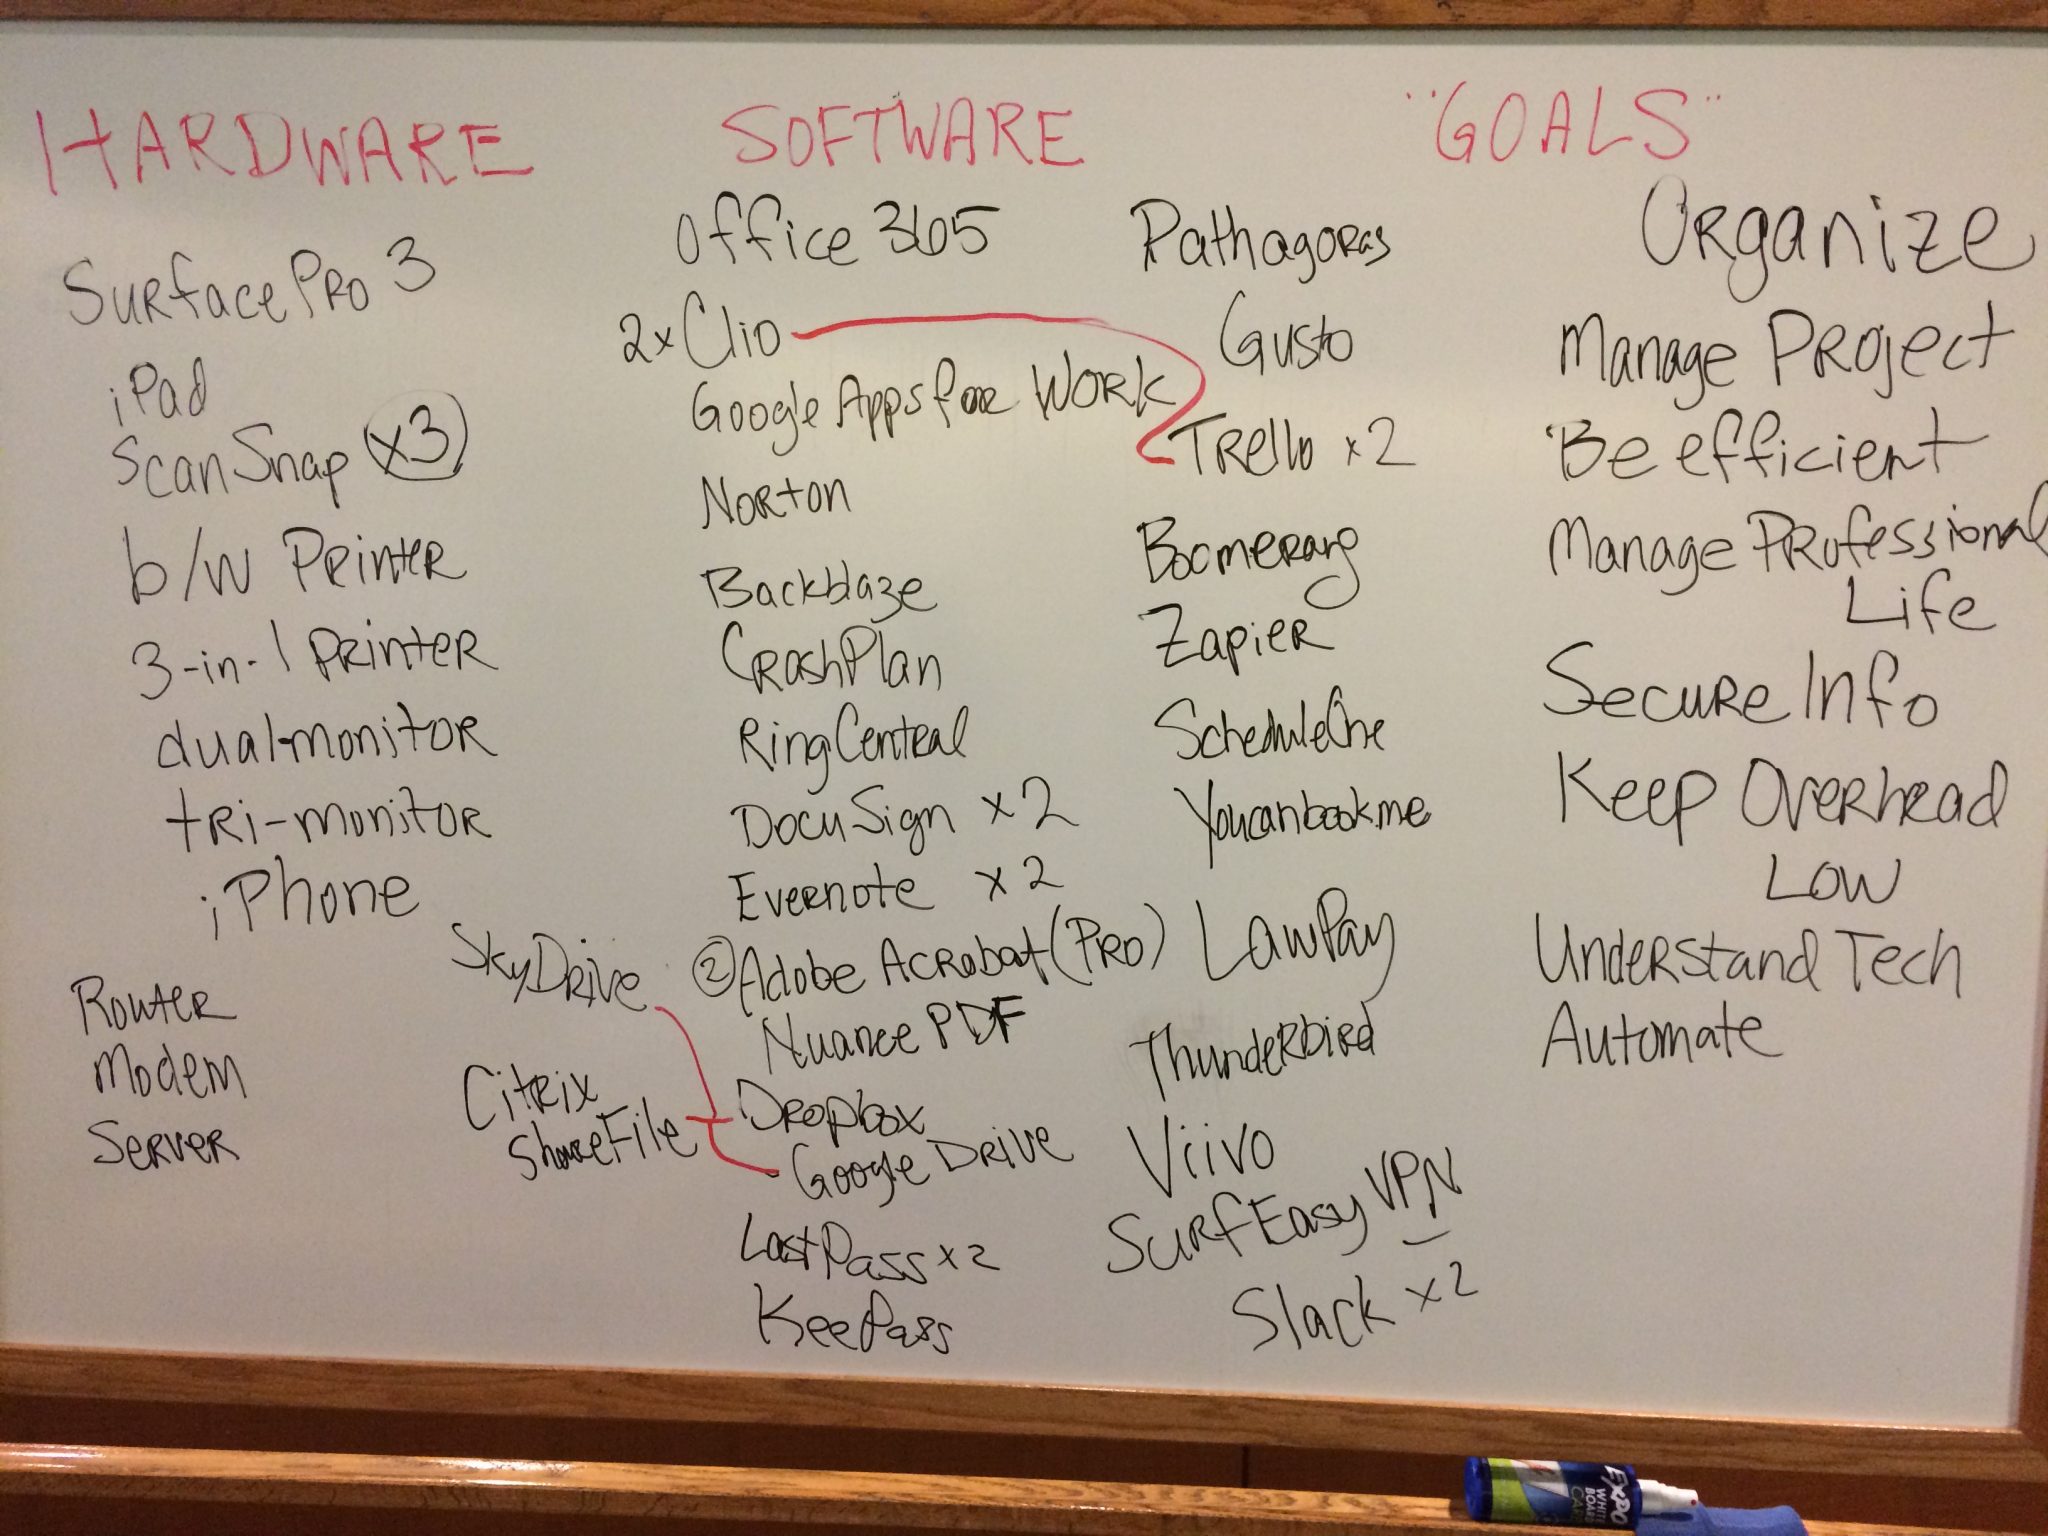 HARDWARE
Surface Pro 3
iPad
ScanSnap x3
b/w Printer
3-in-1 Printer
dual-monitor
tri-monitor
iPhone
Router
Modem
Server
SOFTWARE
Office 365
2x Clio
Google Apps for Work
Norton
Backblaze
CrashPlan
RingCentral
DocuSign x2
Evernote x2
② Adobe Acrobat (Pro)
Nuance PDF
SkyDrive
Citrix
ShareFile
Dropbox
Google Drive
LastPass x2
KeePass
Pathagoras
Gusto
Trello x2
Boomerang
Zapier
ScheduleOne
Youcanbookme
LawPay
Thunderbird
Viivo
SurfEasy VPN
Slack x2
"GOALS"
Organize
Manage Project
Be efficient
Manage Professional
Life
Secure Info
Keep Overhead
Low
Understand Tech
Automate
EXPO
WHITE
BOARD